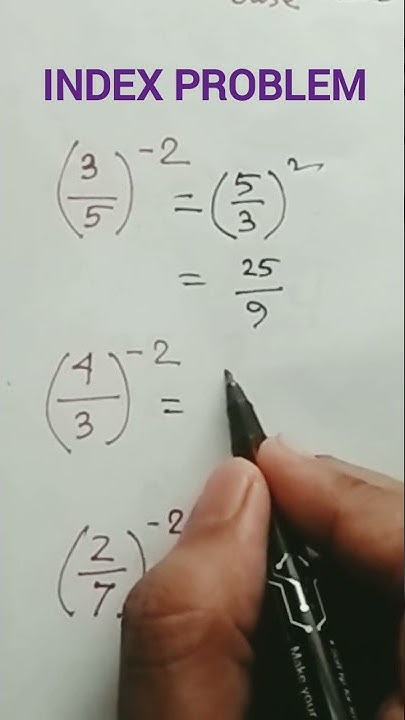 INDEX PROBLEM
(3/5)^-2 = (5/3)^2
= 25/9
(4/3)^-2 =
(2/7)^-2
Make your